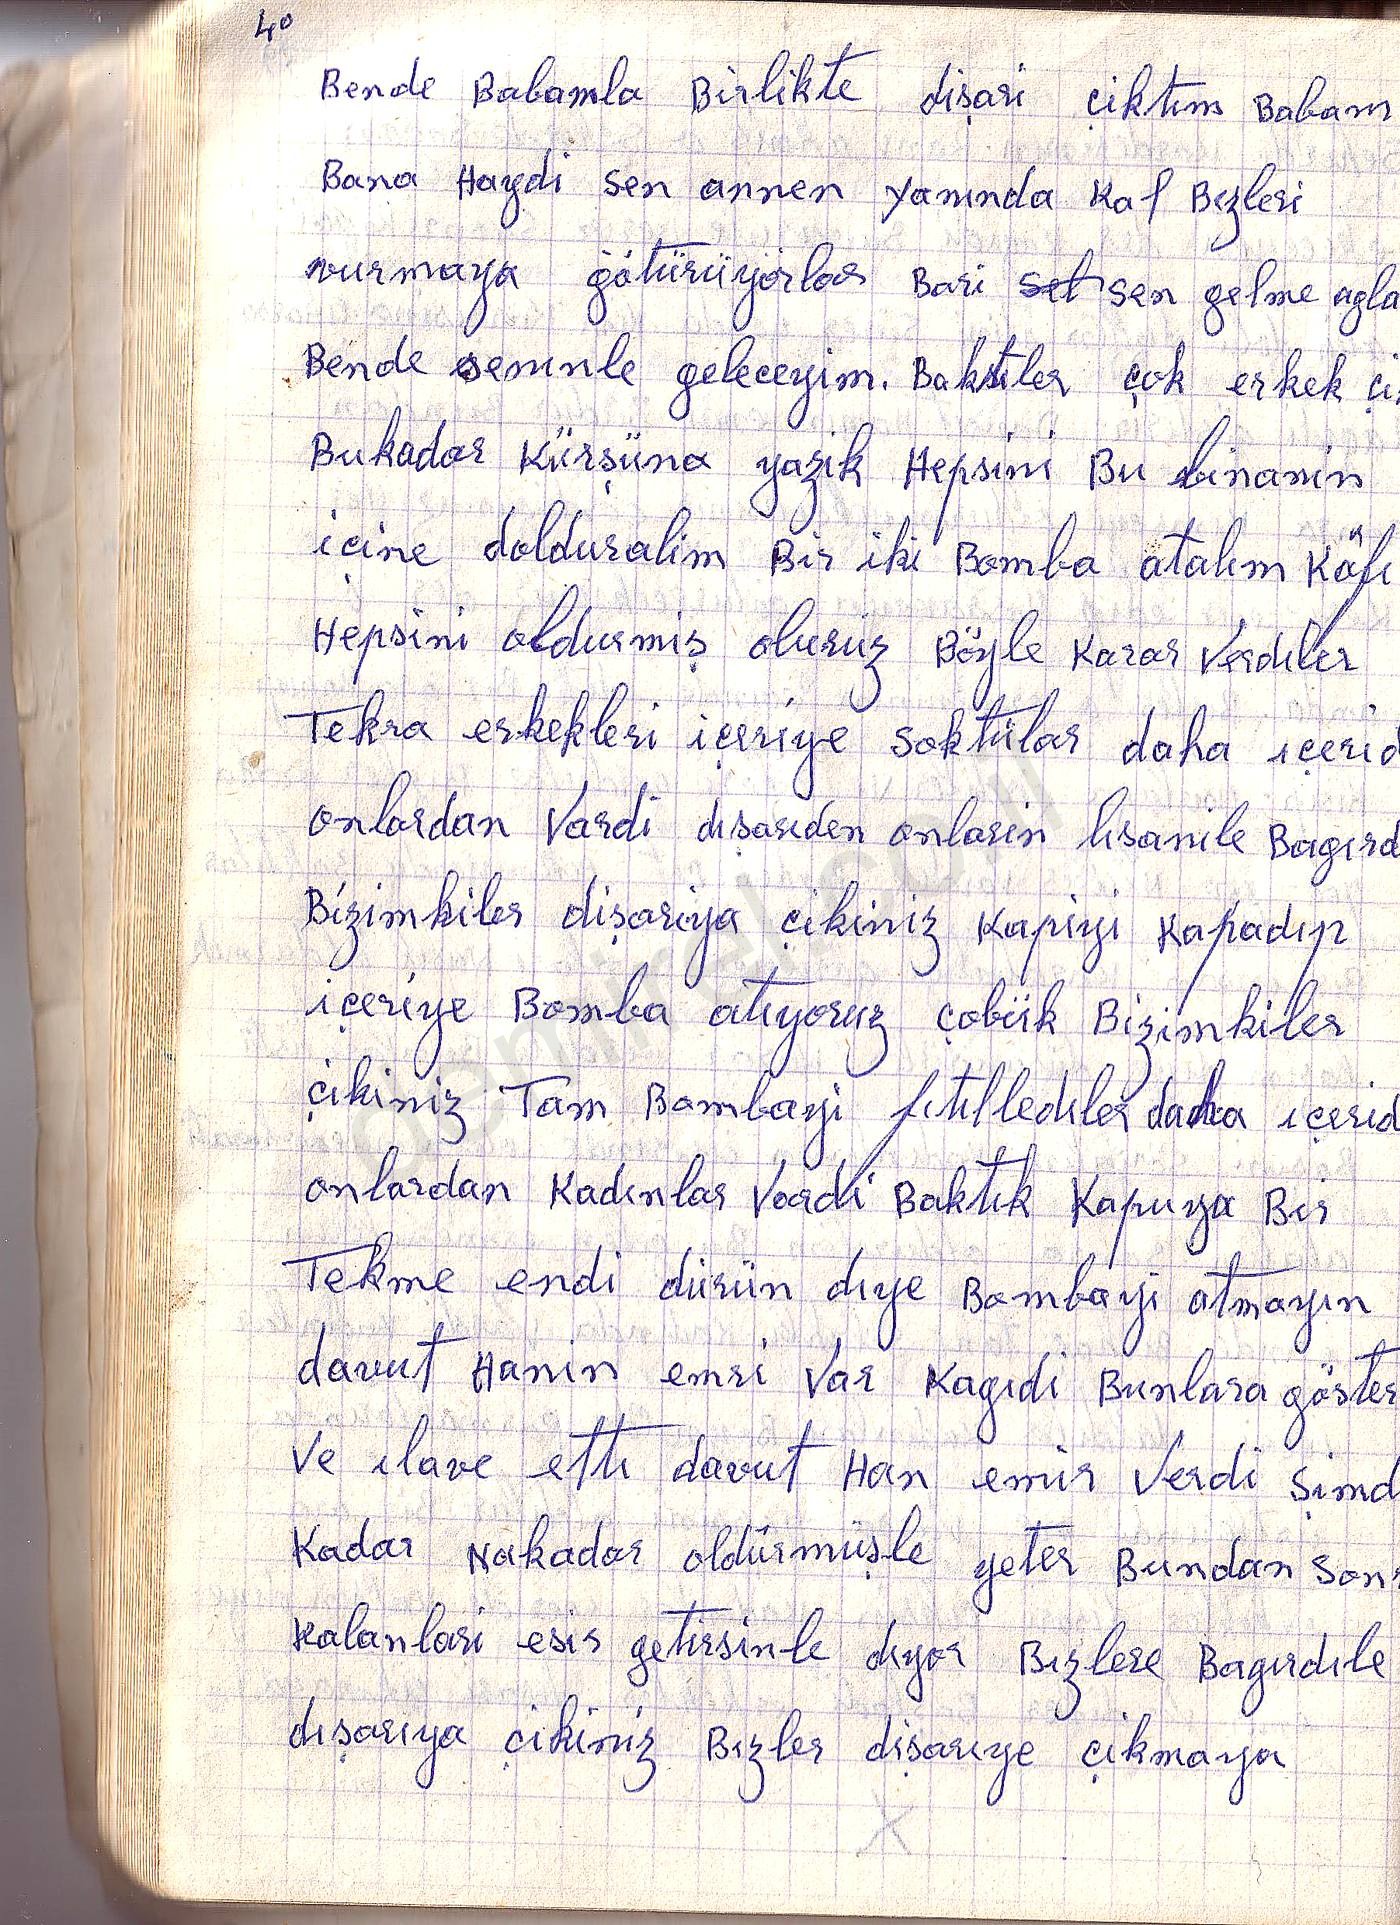 40
Bende Babamla Birlikte dişari çiktım Babam
Bana Haydi sen annen yanında Kal Bızleri
vurmaya götürüyorlar Bari sen gelme agla
Bende senınle geleceyim. Baktıler çok erkek çi
Bukadar Kürşüna yazik Hepsini Bu binanin
içine dolduralim Bir iki Bomba atalım Kâfi
Hepsini oldurmiş oluruz Böyle Karar Verdıler
Tekra erkekleri içeriye soktülar daha içerid
onlardan Vardi dısarıden onlarin lısanile Bagırd
Bizimkiler dişariya çikiniz Kapiyi Kapadıp
içeriye Bomba atıyoruz çobük Bizimkiler
çikiniz Tam Bombayi fıtılledıler daha içerid
onlardan Kadınlar Vardi Baktık Kapuya Bir
Tekme endi dürün dıye Bombayi atmayın
davut Hanin emri Var Kagıdi Bunlara göster
Ve ılave ettı davut Han emir Verdi şimd
Kadar Nakadar oldürmüşle yeter Bundan sonr
Kalanlari esir getirsinle dıyor Bızlere Bagırdıle
dışarıya çikiniz Bızler dişarıye çikmaya